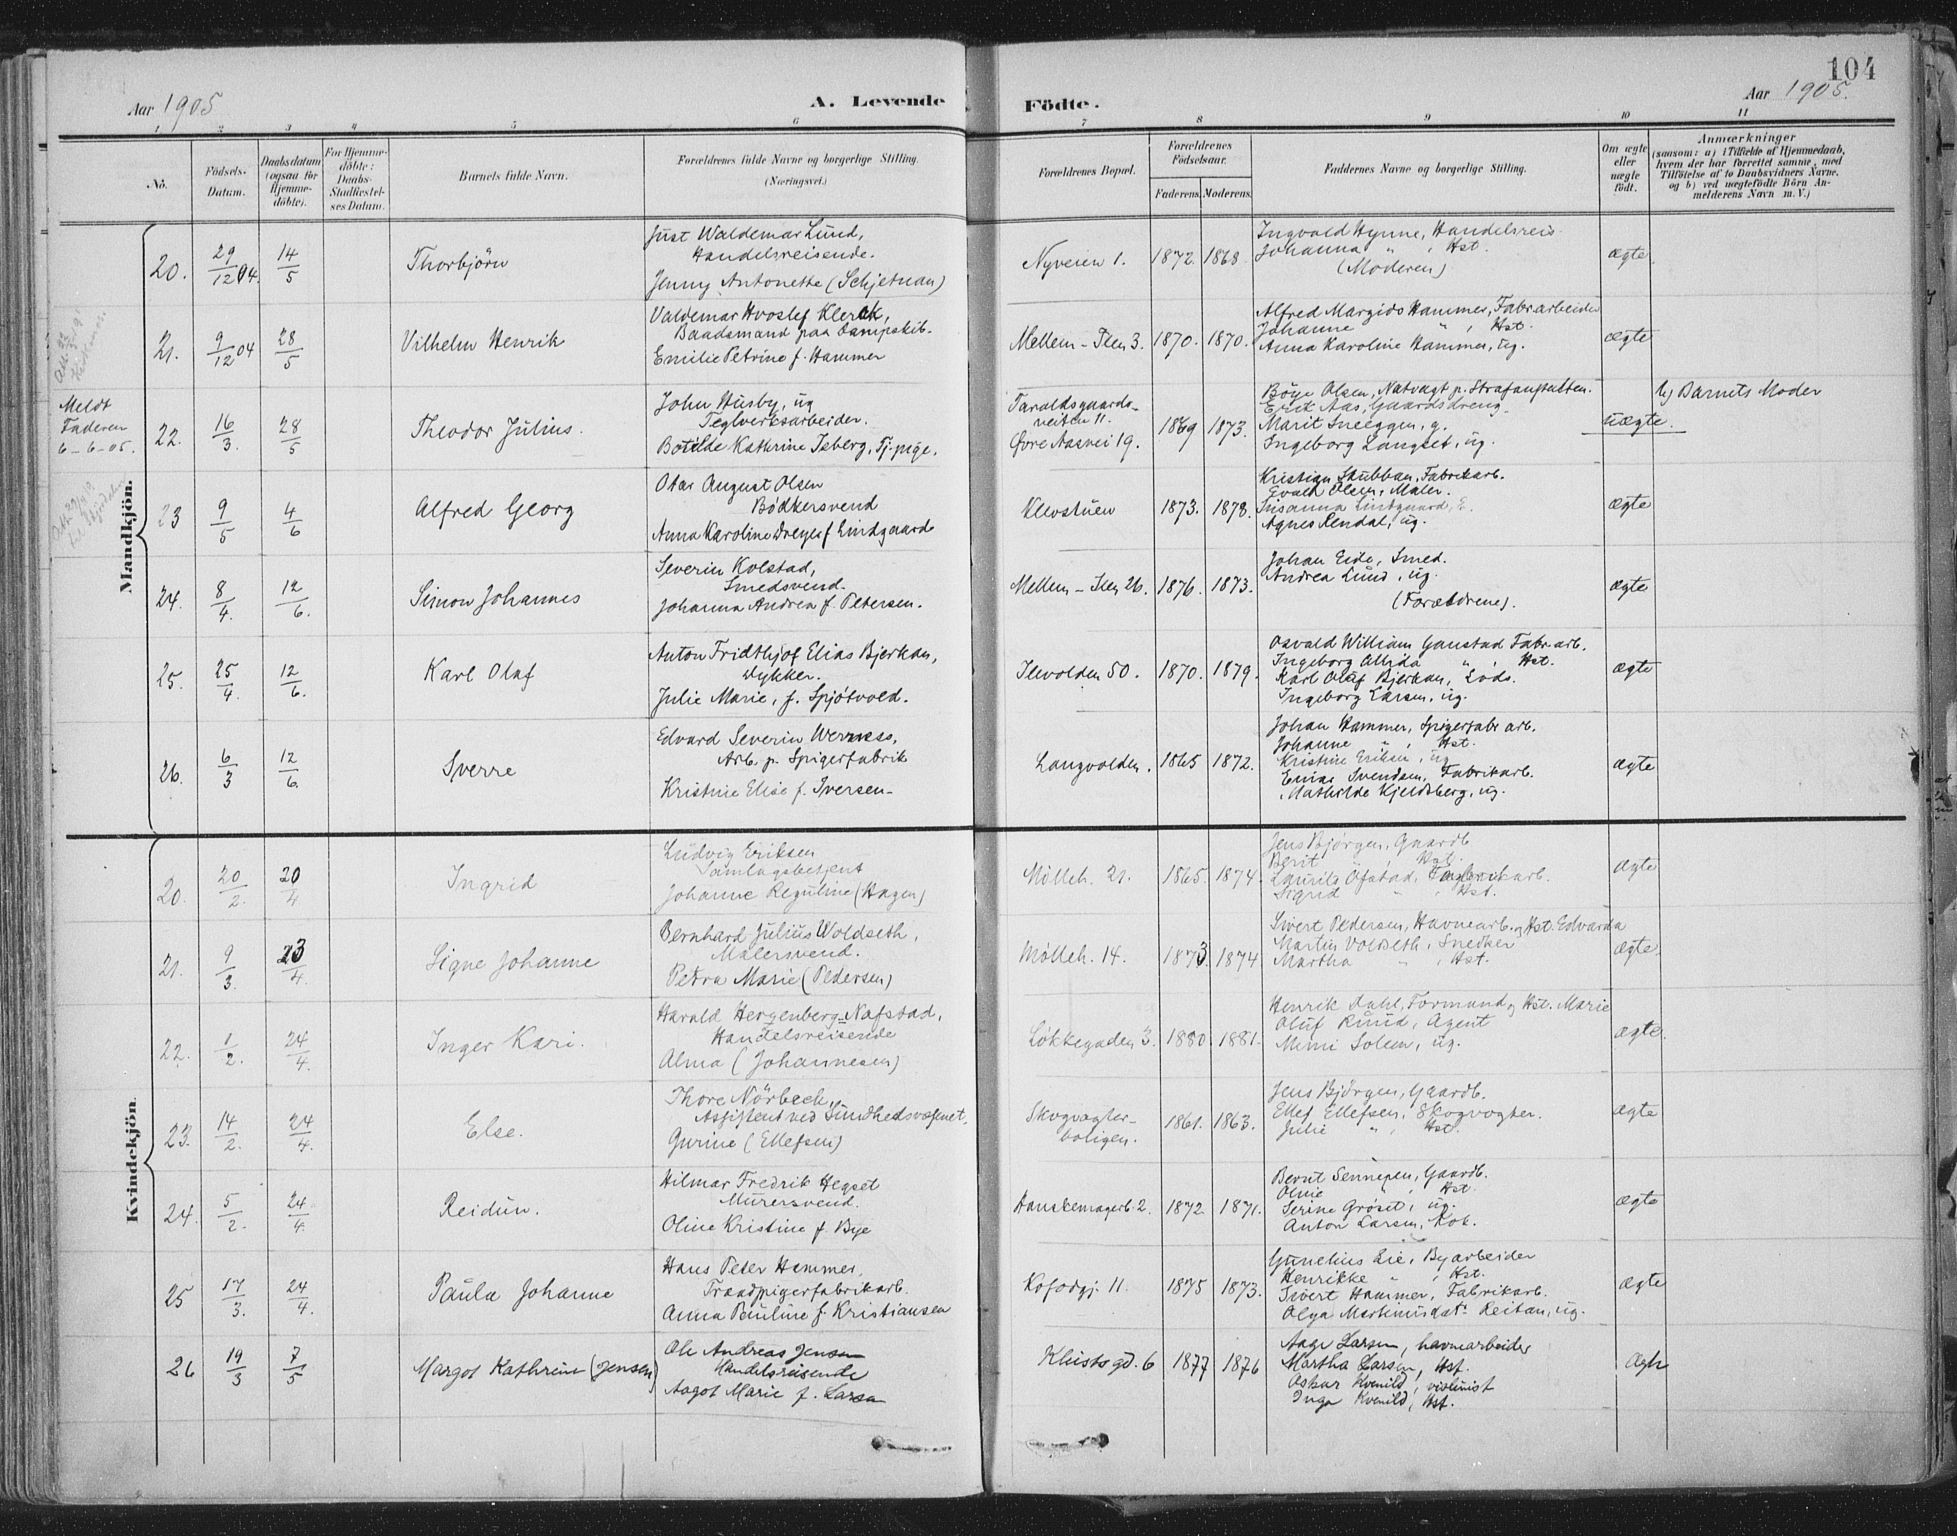 104
Aar 1905
A. Levende
Födte.
Aar 1905.
1 2 3 4 5 6 7 8 9 10 11
No.
Födsels-Datum.
Daabsdatum (ogsaa for Hjemme-döbte).
For Hjemme-döbte: Daabs-Stadfæstel-ses Datum.
Barnets fulde Navn.
Forældrenes fulde Navne og borgerlige Stilling.
(Næringsvei.)
Forældrenes Bopæl.
Forældrenes Födselsaar.
Faderens. Moderens.
Faddernes Navne og borgerlige Stilling.
Om ægte eller uægte födt.
Anmærkninger
(saasom: a) i Tilfælde af Hjemmedaab, hvem der har forrettet samme, med Tilföielse af to Daabsvidners Navne, og b) ved uægtefödte Börn Anmelderens Navn m. V.)
Mandkjön.
20. 29/12 04. 14/5 Thorbjörn
Just Waldemar Lund,
Handelsreisende.
Jenny Antonette (Schjetnan)
Nyveien 1. 1872. 1868.
Ingvald Hynne, Handelsreis.
Johanna " , Hst.
(Moderen)
ægte.
21. 9/12 04 28/5 Vilhelm Henrik
Valdemar Hvoslef Klerck,
Baadsmand paa Dampskib.
Emilie Petrine f. Hammer
Mellem-Ilen 3. 1870. 1870.
Alfred Margido Hammer, Fabrarbeider
Johanne " , Hst.
Anna Karoline Hammer, ug.
ægte
Meldt
Faderen
6-6-05.
22. 16/3. 28/5 Theodor Julius.
John Husby, ug
Teglverksarbeider.
Botilde Kathrine Isberg, Tj.pige.
Taraldsgaards-
veiten 11.
Øvre Aasvei 19. 1869 1873.
Böye Olsen, Natvagt p. Strafanstalten.
Erik Aas, Gaardsdreng.
Marit Sneeggen, g.
Ingeborg Langset, ug.
uægte.
b) Barnets Moder
23 9/5 4/6 Alfred Georg
Otar August Olsen
Bødkersvend
Anna Karoline Dreyer f Lindgaard
Klevstuen 1873. 1878.
Kristian Stubban, Fabrikarb.
Evald Olsen, Maler.
Susanna Lindgaard, E.
Agnes Rendal, ug.
ægte
24. 8/4. 12/6. Simon Johannes
Severin Kolstad,
Smedsvend.
Johanna Andrea f. Petersen.
Mellem-Ilen 26. 1876. 1873.
Johan Eide, Smed.
Andrea Lund, ug.
(Forældrene).
ægte
25. 25/4. 12/6. Karl Olaf
Anton Fridthjof Elias Bjerkan,
Dykker.
Julie Marie, f. Spjøtvold.
Ilevolden 50. 1870. 1879.
Osvald William Ganstad Fabr.arb.
Ingeborg Albida " , Hst.
Karl Olaf Bjerkan, Lods.
Ingeborg Larsen, ug.
ægte
26. 6/3 12/6. Sverre
Edvard Severin Werness,
Arb. p. Spigerfabrik
Kristine Elise f. Iversen-
Langvolden. 1865 1872.
Johan Hammer, Spigerfabr arb.
Johanne " , Hst.
Kristine Eriksen, ug
Enias Svendsen, Fabrikarb.
Mathilde Kjeldsberg, ug.
ægte
Kvindekjön.
20. 20/2. 20/4 Ingrid
Ludvig Eriksen
Samlagsbetjent
Johanne Reguline (Hagen)
Mølleb. 21. 1865. 1874.
Jens Bjørgen, Gaardb.
Berit " , Hst.
Laurits Øfstad, Fabrikarb.
Sigrid " , Hst.
ægte
21. 9/3. 23/4. Signe Johanne
Bernhard Julius Woldseth,
Malersvend.
Petra Marie (Pedersen)
Mølleb. 14. 1873. 1874
Sivert Pedersen, Havnearb. og Hst. Edvarda
Martin Voldseth, Snedker
Martha " , Hst.
ægte.
22. 1/2. 24/4. Inger Kari.
Harald Hergenberg Nafstad,
Handelsreisende
Alma (Johannesen)
Løkkegaden 3. 1880 1881.
Henrik Dahl, Formand og Hst. Marie
Oluf Ruud, Agent
Mimi Solem, ug.
ægte.
23. 14/2. 24/4. Else.
Thore Nörbeck,
Assistent ved Sundhedsvæsenet,
Gurine (Ellefsen)
Skogvagter-
boligen. 1861. 1863.
Jens Bjørgen, Gaardb.
Ellef Ellefsen, Skogvogter.
Julie " , Hst.
ægte
24. 5/2. 24/4. Reidun.
Hilmar Fredrik Hegset
Murersvend.
Oline Kristine f. Bye
Hanskemagerb. 2. 1872 1871.
Bernt Sennesen, Gaardb.
Oline " , Hst.
Serine Grøset, ug.
Anton Larsen, Kok.
ægte
25 17/3. 24/4. Paula Johanne
Hans Peter Hammer,
Traadspigerfabrikarb.
Anna Pauline f. Kristiansen
Kofodgj. 11. 1875 1873.
Gunelius Lie, Byarbeider
Henrikke " , Hst.
Sivert Hammer, Fabrikarb.
Olga Martinusdat. Reitan, ug.
ægte
26 19/3 7/5 Margot Kathrine (Jensen)
Ole Andreas Jensen
Handelsreisende
Aagot Marie f. Larsen
Klists gd. 6 1877 1876
Aage Larsen, havnearbeider
Martha Larsen, Hst.
Oskar Kvenild, violinist
Inga Kvenild, Hst.
Ægte